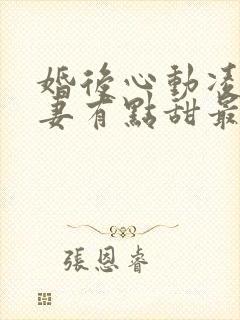 婚後心動凌
妻有點甜最
張恩睿